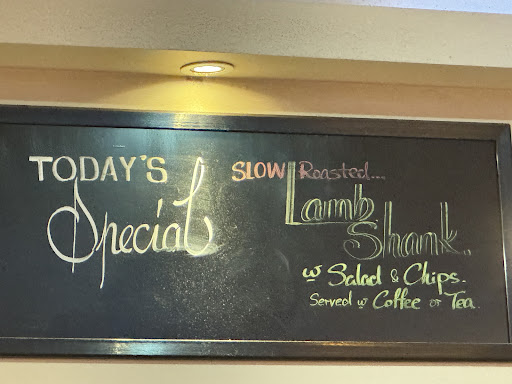 TODAY'S
Special
SLOW Roasted...
Lamb
Shank..
w Salad & Chips.
Served w Coffee or Tea..